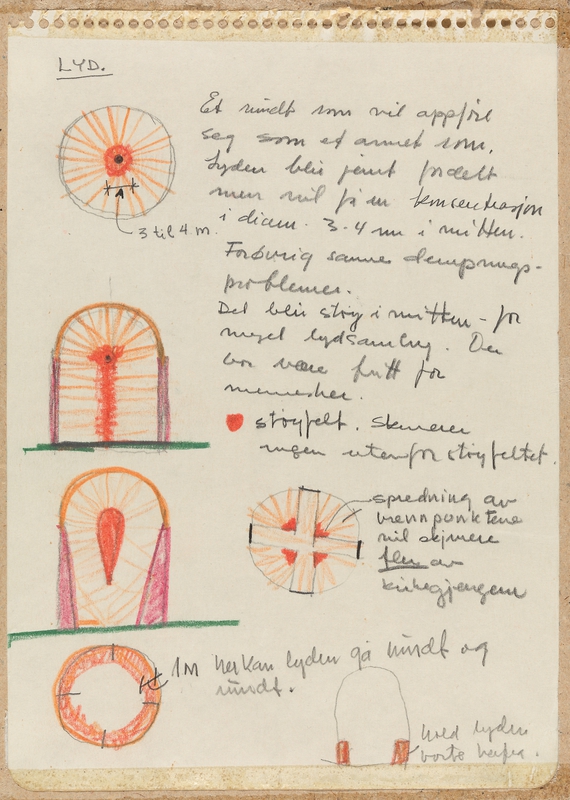 LYD.
Et rundt rom vil oppføre
seg som et annet rom.
Lyden blir jevnt fordelt
men vil få en konsentrasjon
i diam. 3-4 m i mitten.
3 til 4 m.
Forøvrig samme dempnings-
problemer.
Det blir støy i mitten - for
meget lydsamling. Den
bør være fritt for
mennesker.
støyfelt. Skjemmer
ingen utenfor støyfeltet.
spredning av
brennpunktene
vil skjemme
flere av
kirkegjengerne
1M her kan lyden gå rundt og
rundt.
hold lyden
borte herfra.